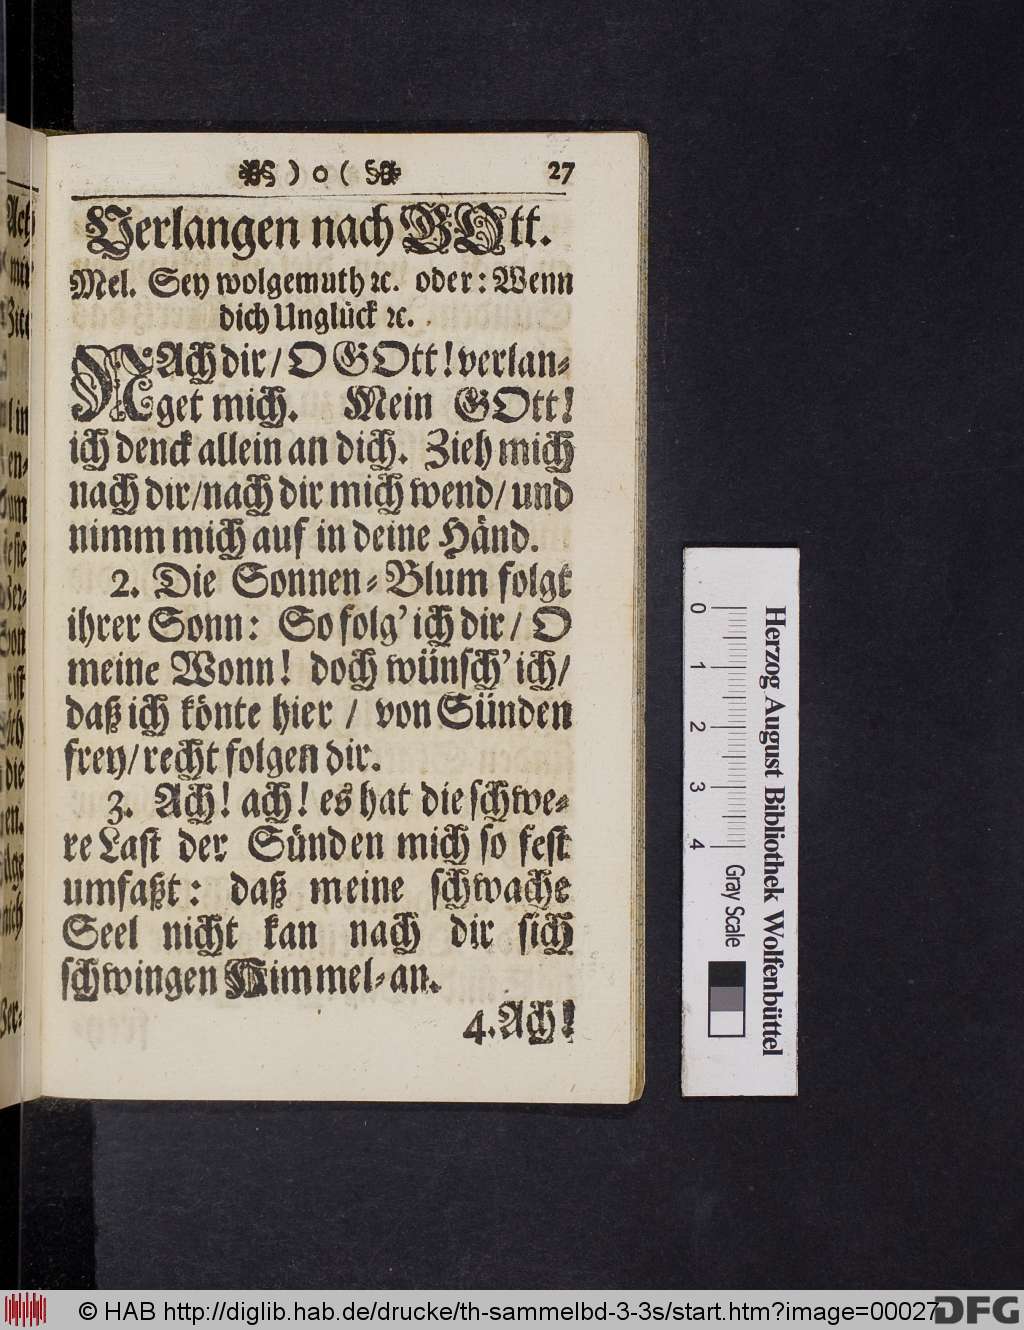 ) o ( 27
Verlangen nach GOtt.
Mel. Sey wolgemuth ꝛc. oder: Wenn
dich Unglück ꝛc.
NAch dir / O GOtt! verlan-
get mich. Mein GOtt!
ich denck allein an dich. Zieh mich
nach dir / nach dir mich wend / und
nimm mich auf in deine Händ.
2. Die Sonnen-Blum folgt
ihrer Sonn: So folg' ich dir / O
meine Wonn! doch wünsch' ich /
daß ich könte hier / von Sünden
frey / recht folgen dir.
3. Ach! ach! es hat die schwe-
re Last der Sünden mich so fest
umfaßt: daß meine schwache
Seel nicht kan nach dir sich
schwingen Himmel-an.
4. Ach!
Herzog August Bibliothek Wolfenbüttel
0 1 2 3 4 Gray Scale
© HAB http://diglib.hab.de/drucke/th-sammelbd-3-3s/start.htm?image=00027
DFG